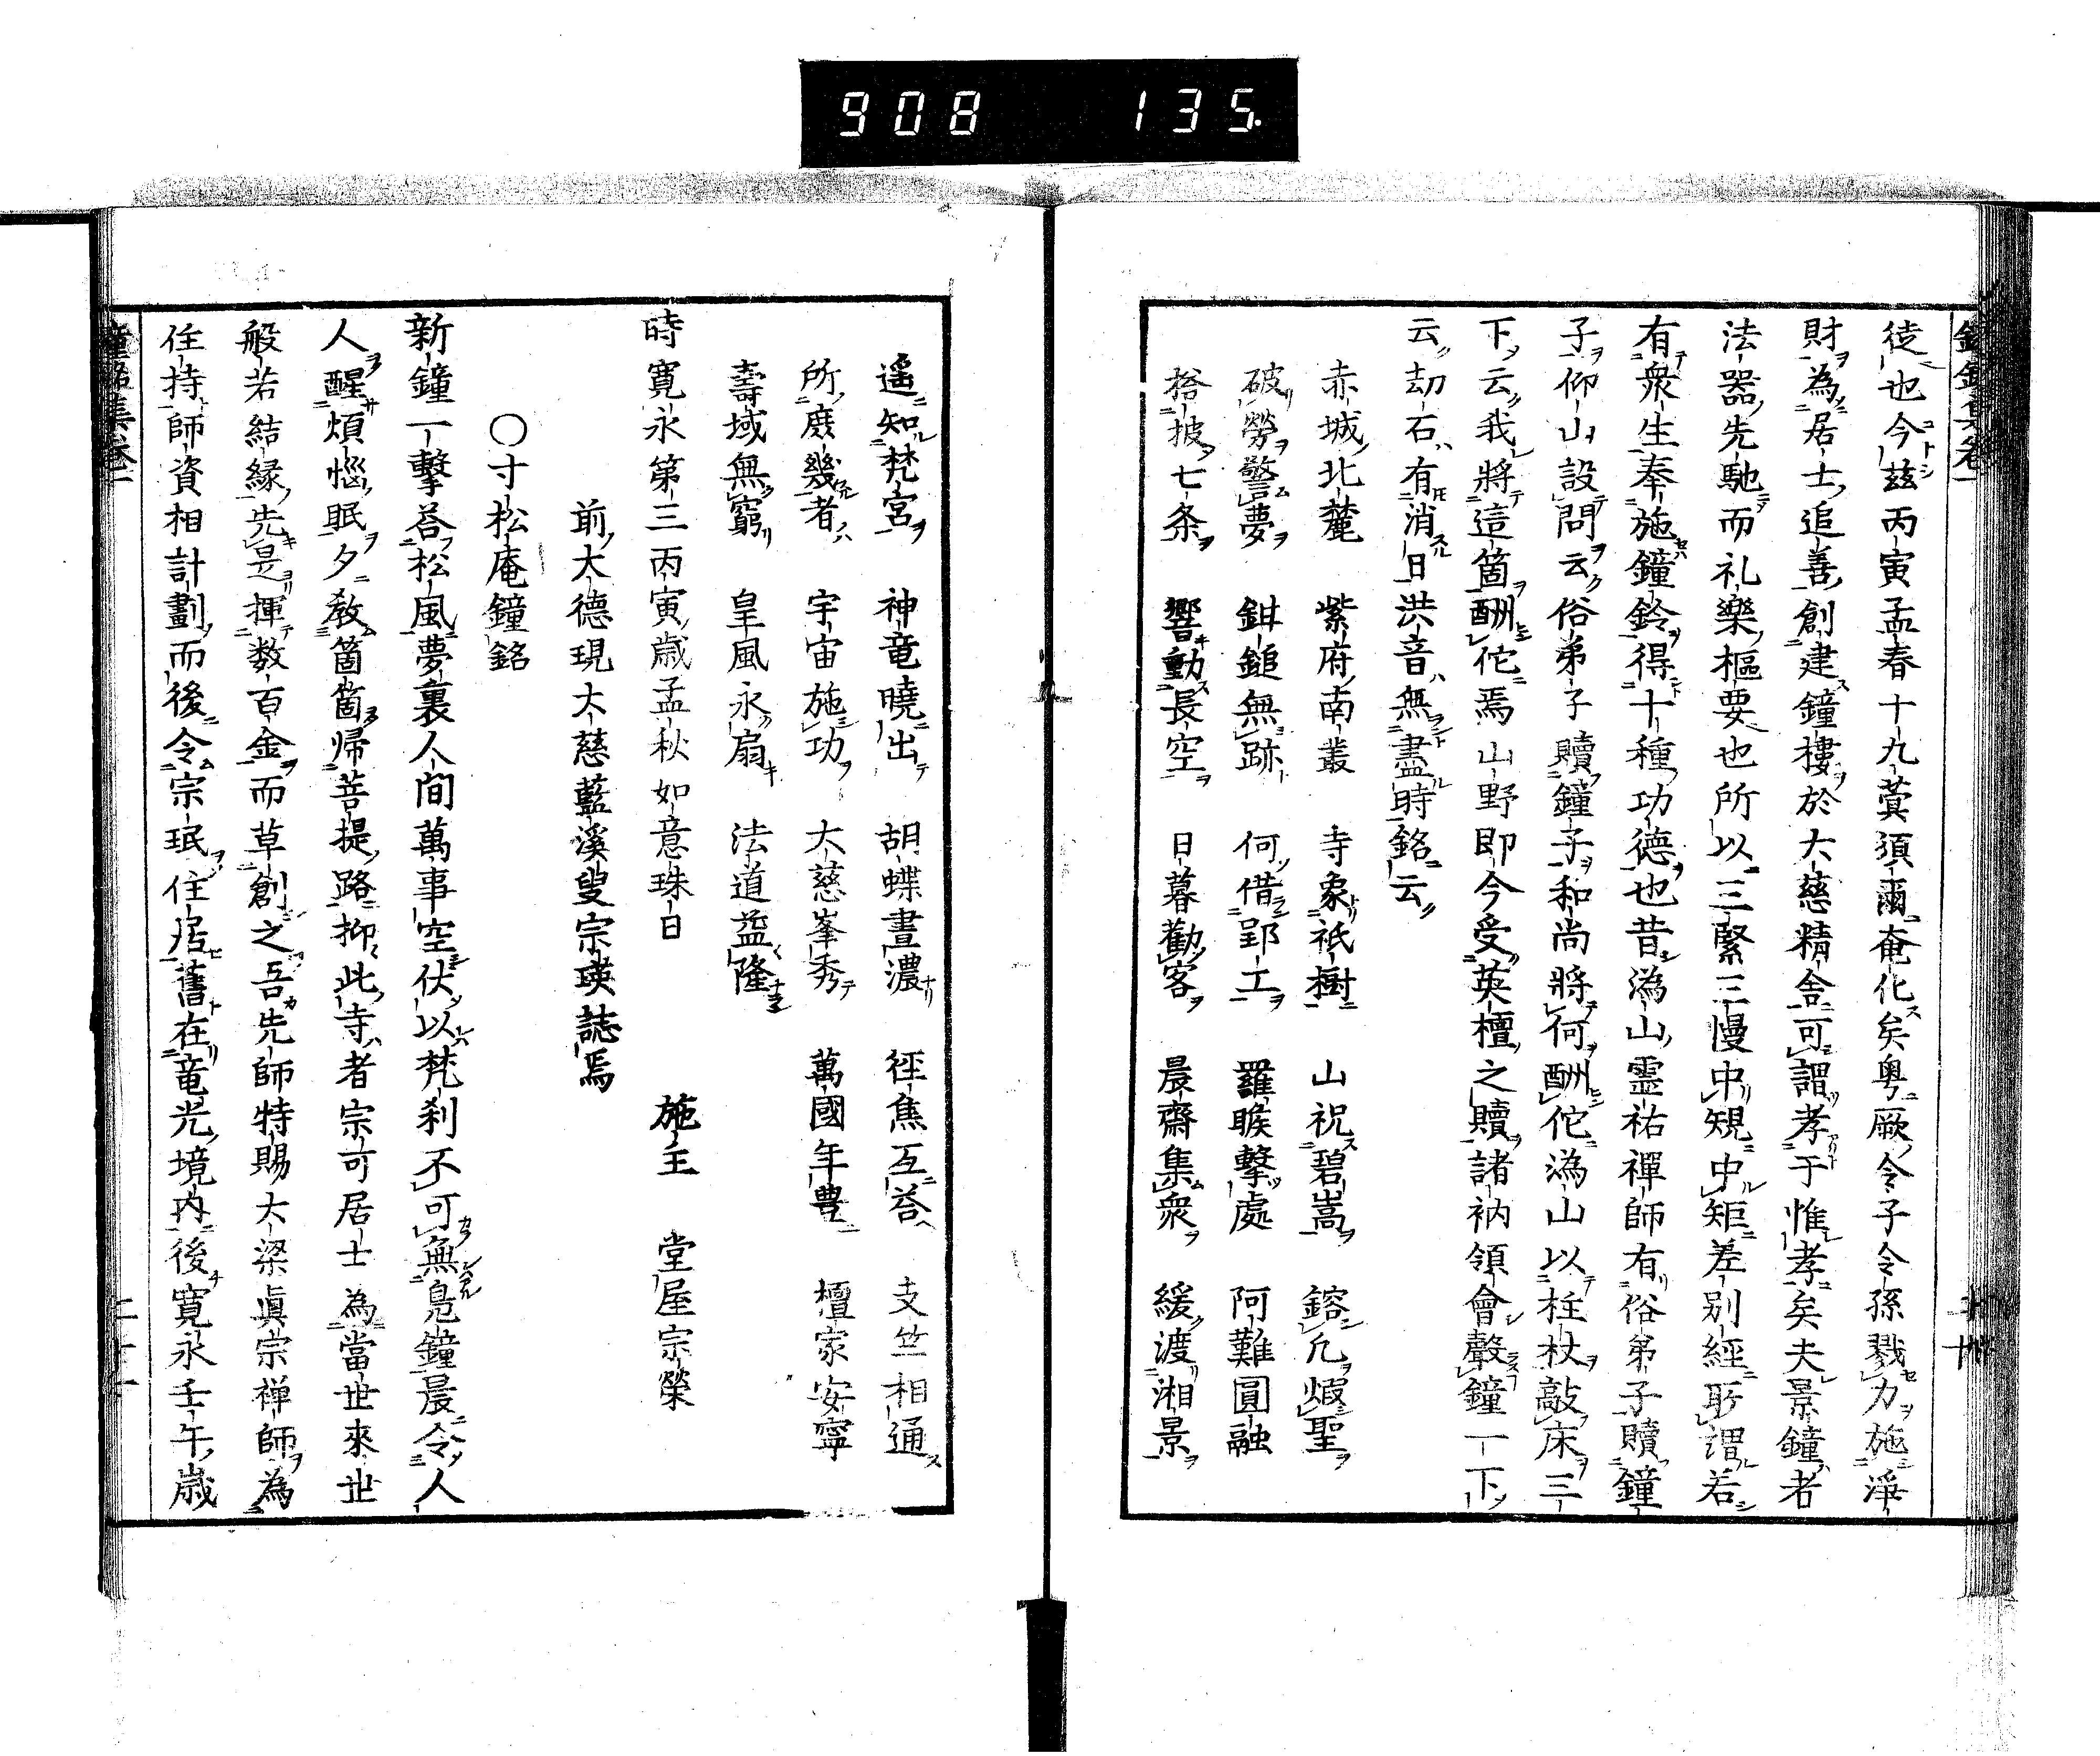 908 135
徒也今茲丙寅孟春十九蓂須爾奄化矣粤厥令子令孫戮力施淨
財為居士追善創建鐘樓於大慈精舍可謂孝于惟孝矣夫景鐘者
法器先馳而礼樂樞要也所以三緊三慢中規中矩差別經所謂若
有衆生奉施鐘鈴得十種功德也昔溈山霊祐禪師有俗弟子贖鐘
子仰山設問云俗弟子贖鐘子和尚將何酬佗溈山以拄杖敲床三
下云我將這箇酬佗焉山野即今受英檀之贖諸衲領會聲鐘一下
云劫石有消日洪音無盡時銘云
赤城北麓 紫府南叢 寺象祇樹 山祝碧嵩 鎔凡煆聖
破勞警夢 鉗鎚無跡 何借郢工 羅睺擊處 阿難圓融
搭披七条 響動長空 日暮勸客 晨齋集衆 緩渡湘景
遥知梵宮 神竜曉出 胡蝶晝濃 徑焦互答 支竺相通
所庶幾者 宇宙施功 大慈峯秀 萬國年豊 檀家安寧
壽域無窮 皇風永扇 法道益隆
時寛永第三丙寅歳孟秋如意珠日 施主 堂屋宗榮
前大德現大慈藍溪叟宗瑛誌焉
〇寸松庵鐘銘
新鐘一擊答松風夢裏人間萬事空伏以梵刹不可無鳧鐘晨令人
人醒煩惱眠夕教箇箇帰菩提路抑此寺者宗可居士為當世來世
般若結縁先是揮数百金而草創之吾先師特賜大梁眞宗禅師為
住持師資相計劃而後令宗珉住居舊在竜光境内後寛永壬午歳
鐘銘集巻一 二十一